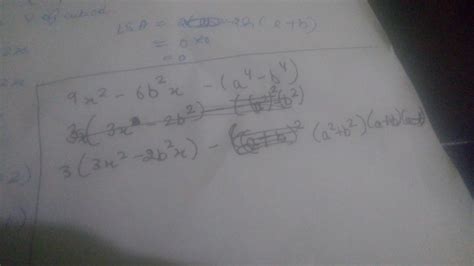 LSA = 2h(a+b)
= 0×0
= 0
2x
9x² - 6b²x - (a⁴ - b⁴)
3x(3x² - 2b²) - ((a)²(b²)
3(3x² - 2b²x) - (a²+b²)(a+b)(a-b)
2)